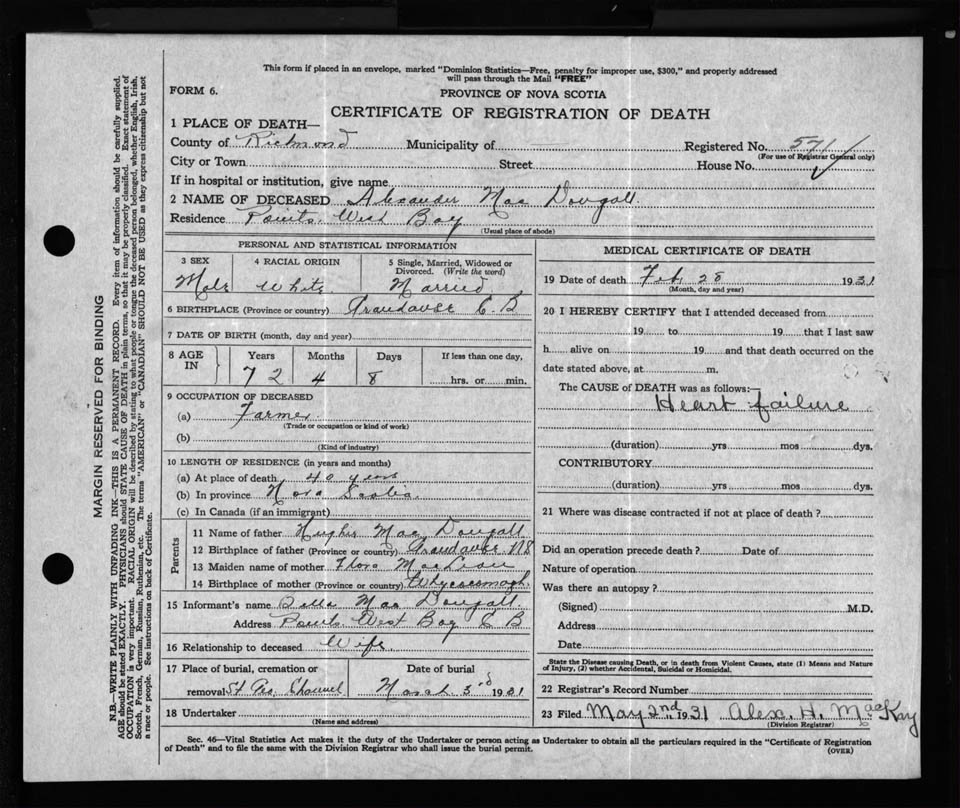 This form if placed in an envelope, marked "Dominion Statistics—Free, penalty for improper use, $300," and properly addressed
will pass through the Mail "FREE"
FORM 6.
PROVINCE OF NOVA SCOTIA
CERTIFICATE OF REGISTRATION OF DEATH
1 PLACE OF DEATH—
County of Richmond Municipality of Registered No. 571
(For use of Registrar General only)
City or Town Street House No.
If in hospital or institution, give name
2 NAME OF DECEASED Alexander Mac Dougall.
Residence Points West Bay
(Usual place of abode)
PERSONAL AND STATISTICAL INFORMATION
3 SEX 4 RACIAL ORIGIN 5 Single, Married, Widowed or Divorced. (Write the word)
Male White Married
6 BIRTHPLACE (Province or country) C. B
7 DATE OF BIRTH (month, day and year)
8 AGE IN Years Months Days If less than one day,
72 4 8 hrs. or min.
9 OCCUPATION OF DECEASED
(a) Farmer
(Trade or occupation or kind of work)
(b)
(Kind of industry)
10 LENGTH OF RESIDENCE (in years and months)
(a) At place of death 40 years
(b) In province Nova Scotia.
(c) In Canada (if an immigrant)
Parents
11 Name of father Hugh Mac Dougall
12 Birthplace of father (Province or country) NS
13 Maiden name of mother Flora MacLean
14 Birthplace of mother (Province or country) Whycocomagh
15 Informant's name Bella Mac Dougall.
Address Points West Bay C B
16 Relationship to deceased Wife
17 Place of burial, cremation or Date of burial
removal St Geo. Channel March 3rd 1931
18 Undertaker
(Name and address)
MEDICAL CERTIFICATE OF DEATH
19 Date of death Feb. 28 1931
(Month, day and year)
20 I HEREBY CERTIFY that I attended deceased from
19 to 19 that I last saw
h alive on 19 and that death occurred on the
date stated above, at m.
The CAUSE of DEATH was as follows:—
Heart failure
(duration) yrs mos dys.
CONTRIBUTORY
(duration) yrs mos dys.
21 Where was disease contracted if not at place of death?
Did an operation precede death? Date of
Nature of operation
Was there an autopsy?
(Signed) M.D.
Address
Date
State the Disease causing Death, or in death from Violent Causes, state (1) Means and Nature
of Injury, (2) whether Accidental, Suicidal or Homicidal.
22 Registrar's Record Number
23 Filed May 2nd 1931 Alex. H. MacKay
(Division Registrar)
Sec. 46—Vital Statistics Act makes it the duty of the Undertaker or person acting as Undertaker to obtain all the particulars required in the "Certificate of Registration
of Death" and to file the same with the Division Registrar who shall issue the burial permit.
(OVER)
MARGIN RESERVED FOR BINDING
N.B.—WRITE PLAINLY WITH UNFADING INK—THIS IS A PERMANENT RECORD. Every item of information should be carefully supplied.
AGE should be stated EXACTLY. PHYSICIANS should STATE CAUSE OF DEATH in plain terms, so that it may be properly classified. Exact statement of
OCCUPATION is very important. RACIAL ORIGIN will be described by stating to what people or tongue the deceased person belonged, whether English, Irish,
Scotch, French, German, Russian, Ruthenian, etc. The terms "AMERICAN" or "CANADIAN" SHOULD NOT BE USED as they express citizenship but not
a race or people. See instructions on back of Certificate.